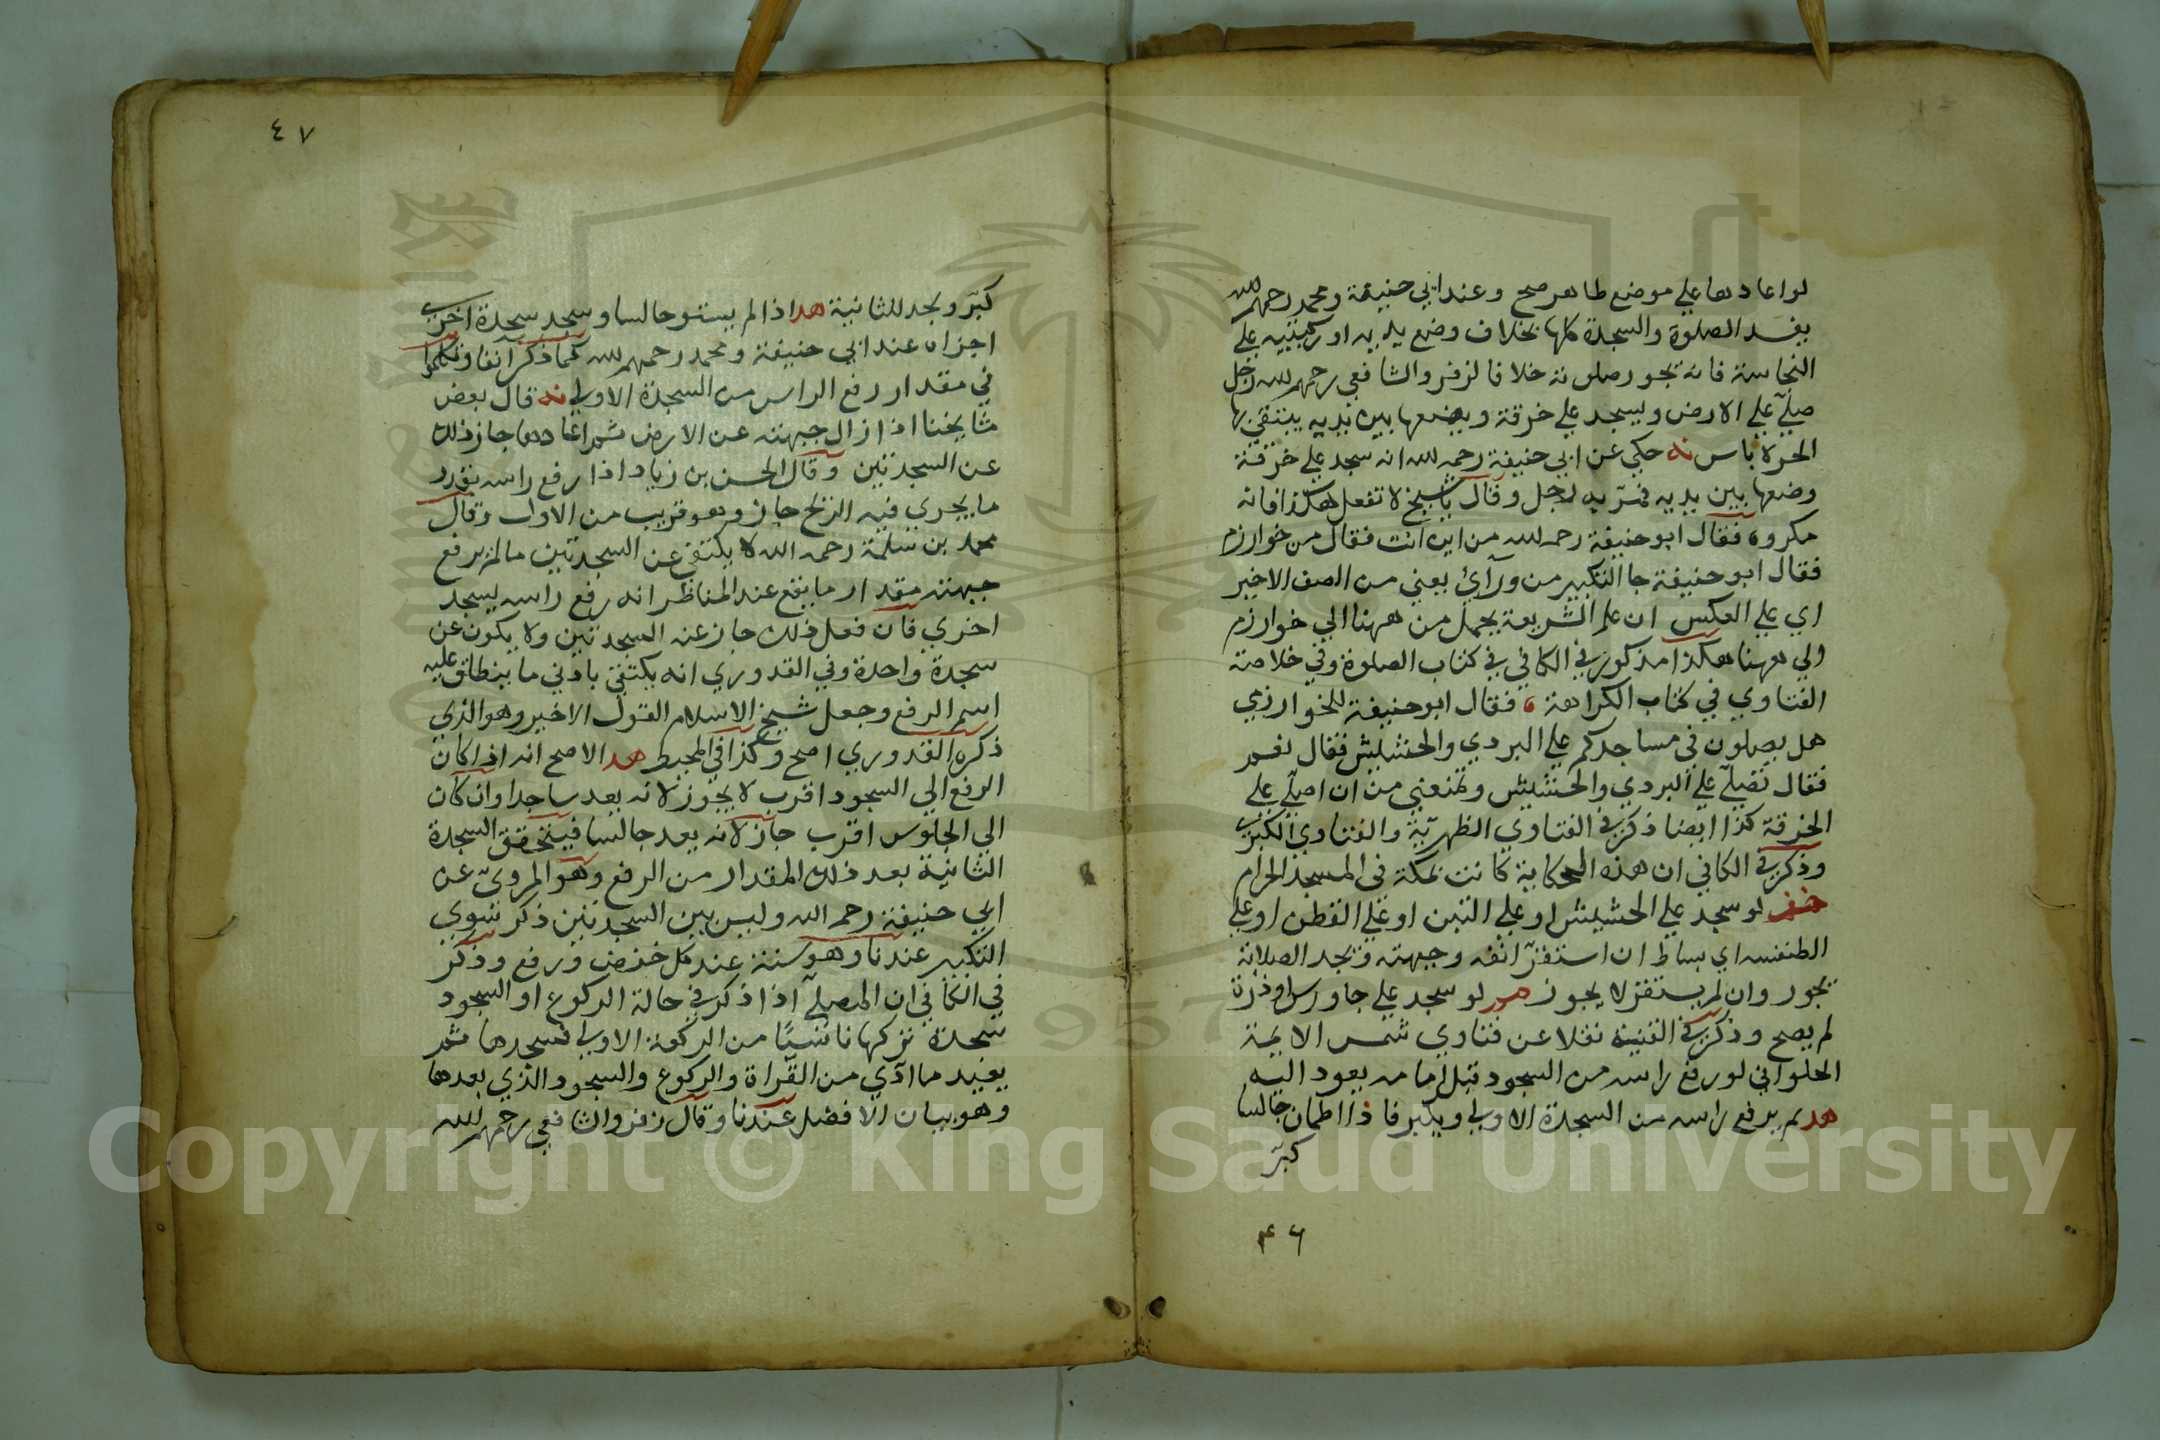 لو اعادها علي موضع طاهر صح وعند ابي حنيفة ومحمد رحمهم الله
يفسد الصلوة والسجدة كلها بخلاف وضع يديه او ركبتيه علي
النجاسة فانه يجوز صلوته خلافا لزفر والشافعي رحمهم الله رجل
صلي علي الارض ويسجد علي خرقة ويضعها بين يديه يتقي بها
الحر لا باس نه حكي عن ابي حنيفة رحمه الله انه سجد علي خرقة
وضعها بين يديه فمر به رجل وقال يا شيخ لا تفعل هكذا فانه
مكروه فقال ابو حنيفة رحمه الله من اين انت فقال من خوارزم
فقال ابو حنيفة جا التكبير من ورآئ يعني من الصف الاخير
اي علي العكس ان علم الشريعة يحمل من ههنا الي خوارزم
والي ههنا هكذا مذكور في الكافي في كتاب الصلوة وفي خلاصة
الفتاوي في كتاب الكراهة فقال ابو حنيفة للخوارزمي
هل يصلون في مساجدكم علي البردي والحشيش فقال نعم
فقال تصلي علي البردي والحشيش وتمنعني من ان اصلي علي
الخرقة كذا ايضا ذكر في الفتاوي الظهرية والفتاوي الكبري
وذكر في الكافي ان هذه الحكاية كانت بمكة في المسجد الحرام
لو سجد علي الحشيش او علي التبن او علي القطن او علي
الطنفسه اي بساط ان استقر انفه وجبهته ويجد الصلابة
يجوز وان لم يستقر لا يجوز لو سجد علي جاورس او ذرة
لم يصح وذكر في القنية نقلا عن فتاوي شمس الايمة
الحلواني لو رفع راسه من السجود قبل امامه يعود اليه
هد ثم يرفع راسه من السجدة الاولي ويكبر فاذا اطمان جالسا
كبر
٤٦
٤٧
كبر ويجد للثانية هد اذا لم يستو جالسا وسجد سجدة اخري
اجزاه عند ابي حنيفة ومحمد رحمهم الله كما ذكر انفا وتكلموا
في مقدار رفع الراس من السجدة الاولي نه قال بعض
مشايخنا اذا ازال جبهته عن الارض ثم اعادها جاز ذلك
عن السجدتين وقال الحسن بن زياد اذا رفع راسه بقدر
ما يجري فيه الريح جاز وهو قريب من الاول وقال
محمد بن سلمة رحمه الله لا يكتفي عن السجدتين ما لم يرفع
جبهته مقدار ما يقع عند المناظر انه رفع راسه يسجد
اخري فان فعل ذلك جاز عنه السجدتين ولا يكون عن
سجدة واحدة وفي القدوري انه يكتفي بادني ما ينطلق عليه
اسم الرفع وجعل شيخ الاسلام القول الاخير وهو الذي
ذكره القدوري اصح وكذا في المحيط هد الاصح انه اذا كان
الرفع الي السجود اقرب لا يجوز لانه يعد ساجدا وان كان
الي الجلوس اقرب جاز لانه يعد جالسا فيتحقق السجدة
الثانية بعد ذلك المقدار من الرفع وهو المروي عن
ابي حنيفة رحمه الله وليس بين السجدتين ذكر سوي
التكبير عندنا وهو سنة عند كل خفض ورفع وذكر
في الكافي ان المصلي اذا ذكر في حالة الركوع او السجود
سجدة تركها ناسيا من الركعة الاولي فسجدها ثم
يعيد ما ادي من القرآة والركوع والسجود الذي بعدها
وهو بيان الافضل عندنا وقال زفر والشافعي رحمهم الله
Copyright © King Saud University
957